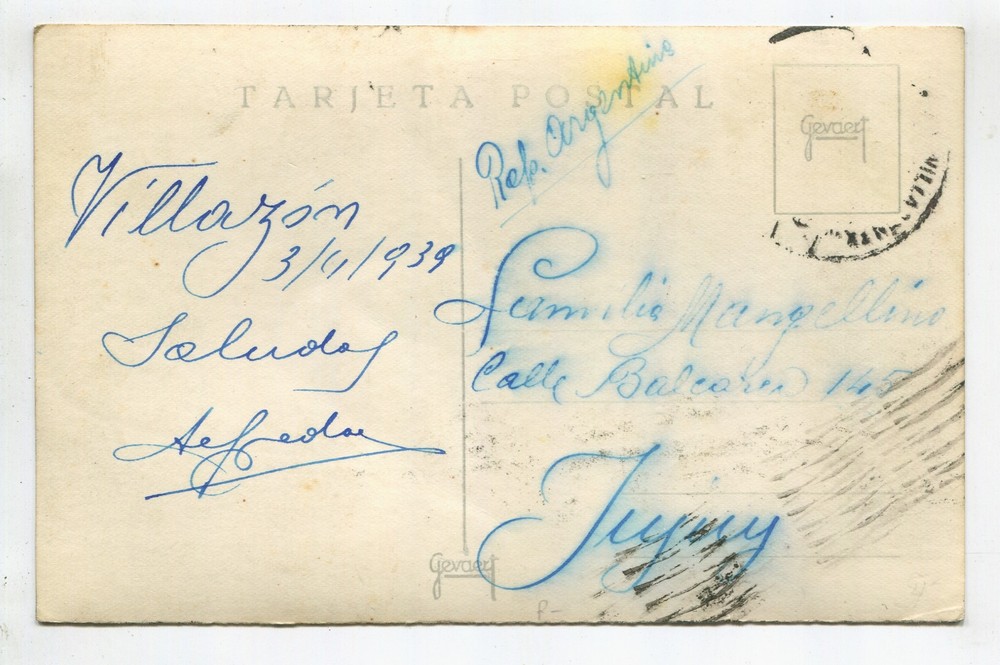 TARJETA POSTAL
Rep. Argentina
Gevaert
Villazón
3/4/1939
Saludos
Alfredo
Familia Mangellino
Calle Balcarce 145
Jujuy
Gevaert